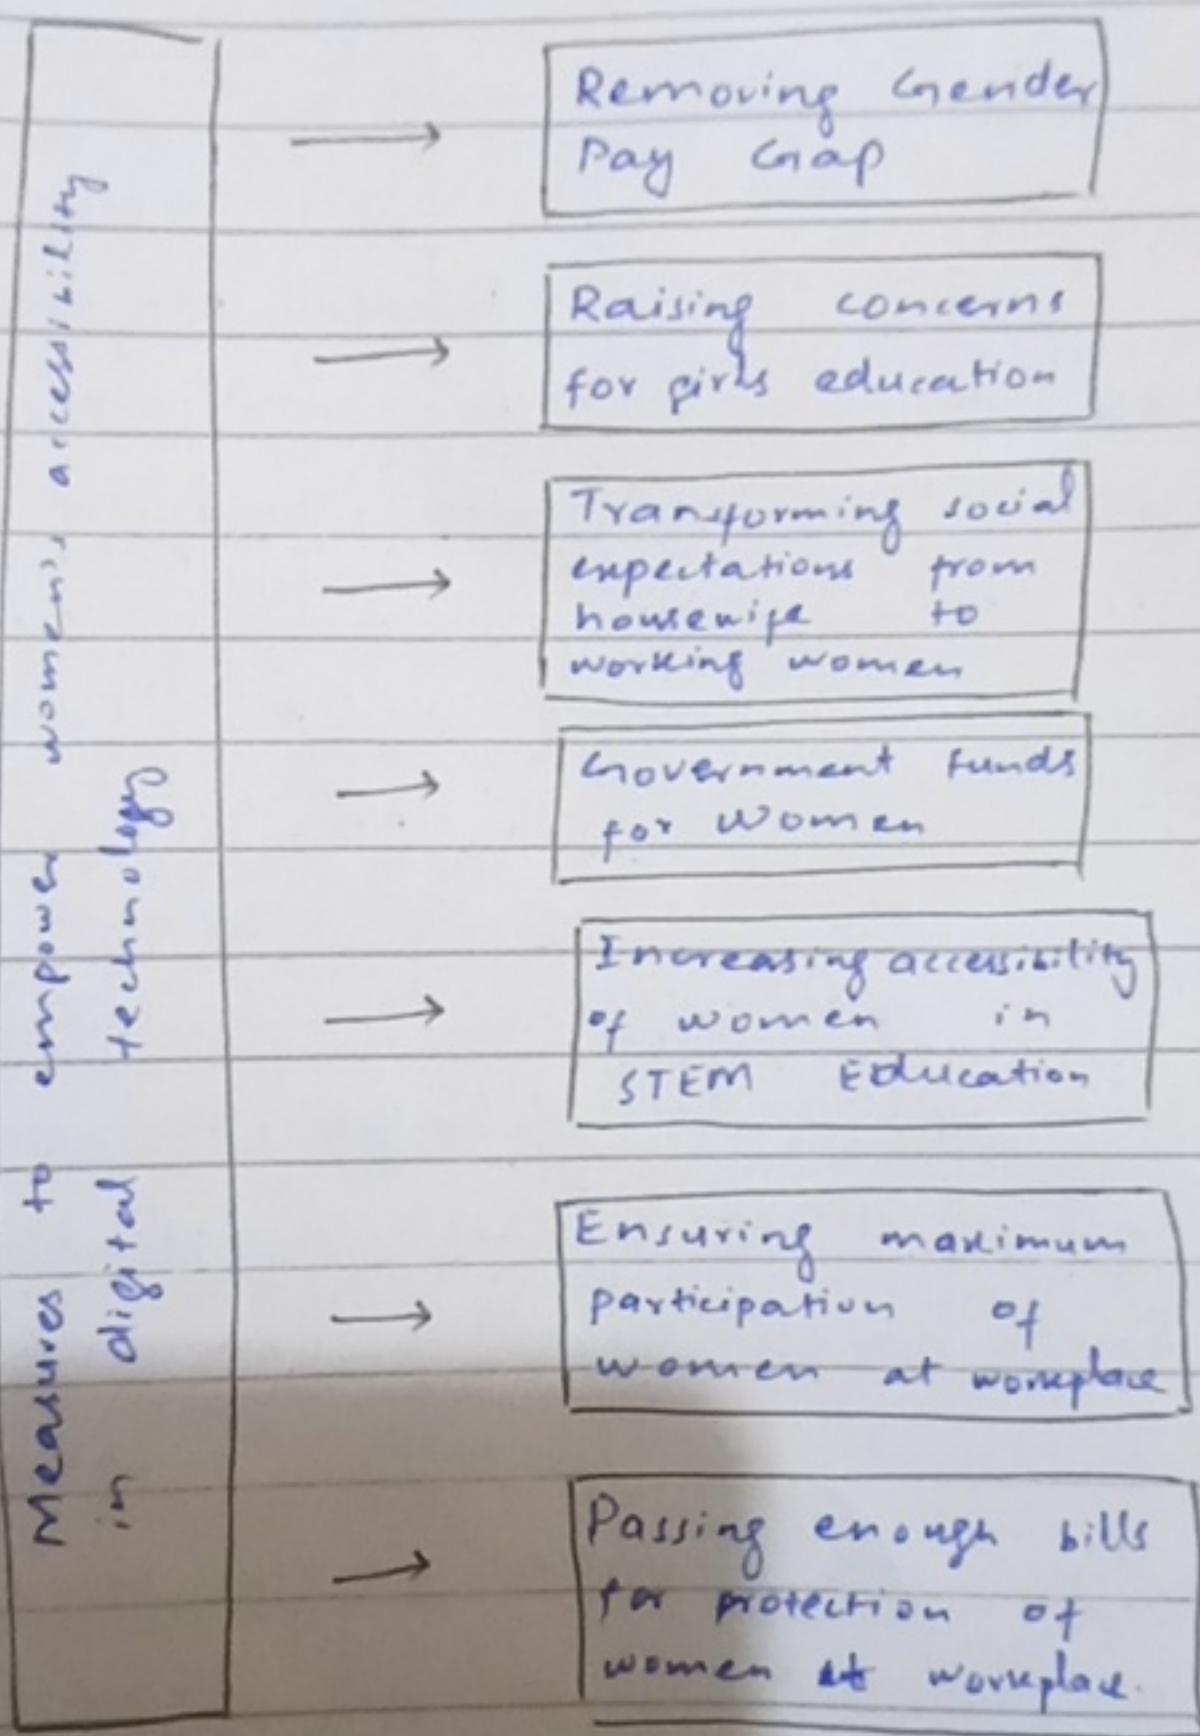 Measures to empower women's accessibility
in digital technology
Removing Gender
Pay Gap
Raising concerns
for girls education
Transforming social
expectations from
housewife to
working women
Government funds
for women
Increasing accessibility
of women in
STEM Education
Ensuring maximum
participation of
women at workplace
Passing enough bills
for protection of
women at workplace.